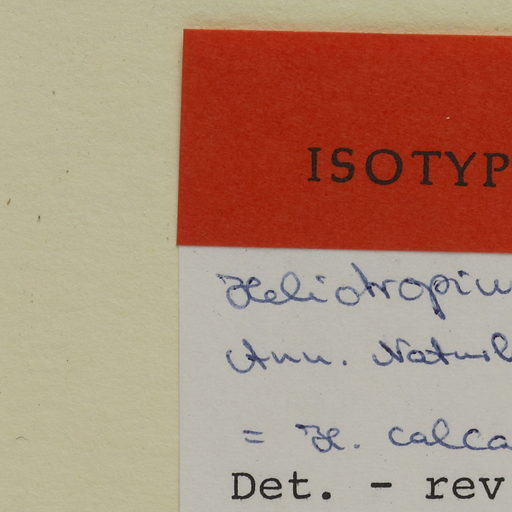 ISOTYP
Heliotropium
Ann. Naturh
= H. calca
Det. - rev